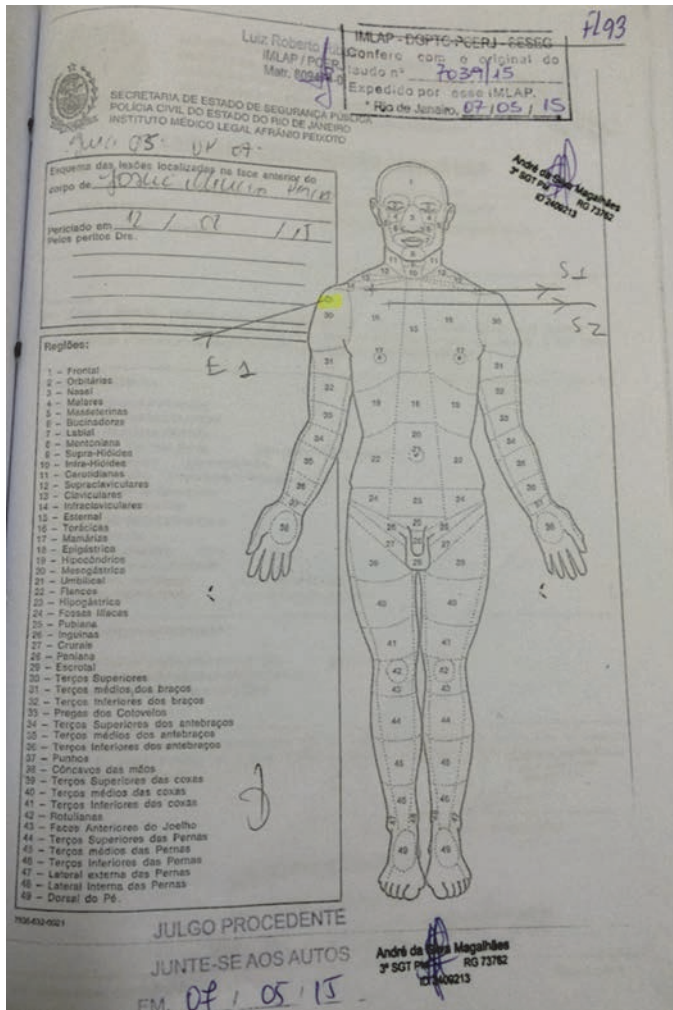 Fl 93
Luiz Roberto
IMLAP / PCERJ
Matr.
IMLAP - DGPTC-PCERJ - SESEG
Confere com o original do
laudo nº 7039/15
Expedido por esse IMLAP.
* Rio de Janeiro, 07/05/15
SECRETARIA DE ESTADO DE SEGURANÇA PÚBLICA
POLÍCIA CIVIL DO ESTADO DO RIO DE JANEIRO
INSTITUTO MÉDICO LEGAL AFRÂNIO PEIXOTO
André da Silva Magalhães
3º SGT PM RG 73762
ID 2409213
Esquema das lesões localizadas na face anterior do
corpo de
Periciado em 12 / /15
Pelos peritos Drs.
S1
S2
E 1
Regiões:
1 – Frontal
2 – Orbitárias
3 – Nasal
4 – Malares
5 – Masseterinas
6 – Bucinadoras
7 – Labial
8 – Mentoniana
9 – Supra-Hióides
10 – Infra-Hióides
11 – Carotidianas
12 – Supraclaviculares
13 – Claviculares
14 – Infraclaviculares
15 – Esternal
16 – Torácicas
17 – Mamárias
18 – Epigástrica
19 – Hipocôndrios
20 – Mesogástrico
21 – Umbilical
22 – Flancos
23 – Hipogástrico
24 – Fossas Ilíacas
25 – Pubiana
26 – Inguinas
27 – Crurais
28 – Peniana
29 – Escrotal
30 – Terços Superiores
31 – Terços médios dos braços
32 – Terços Inferiores dos braços
33 – Pregas dos Cotovelos
34 – Terços Superiores dos antebraços
35 – Terços médios dos antebraços
36 – Terços Inferiores dos antebraços
37 – Punhos
38 – Côncavos das mãos
39 – Terços Superiores das coxas
40 – Terços médios das coxas
41 – Terços Inferiores das coxas
42 – Rotulianas
43 – Faces Anteriores do Joelho
44 – Terços Superiores das Pernas
45 – Terços médios das Pernas
46 – Terços Inferiores das Pernas
47 – Lateral externa das Pernas
48 – Lateral Interna das Pernas
49 – Dorsal do Pé.
JULGO PROCEDENTE
JUNTE-SE AOS AUTOS
EM 07 / 05 / 15
André da Silva Magalhães
3º SGT PM RG 73762
ID 2409213